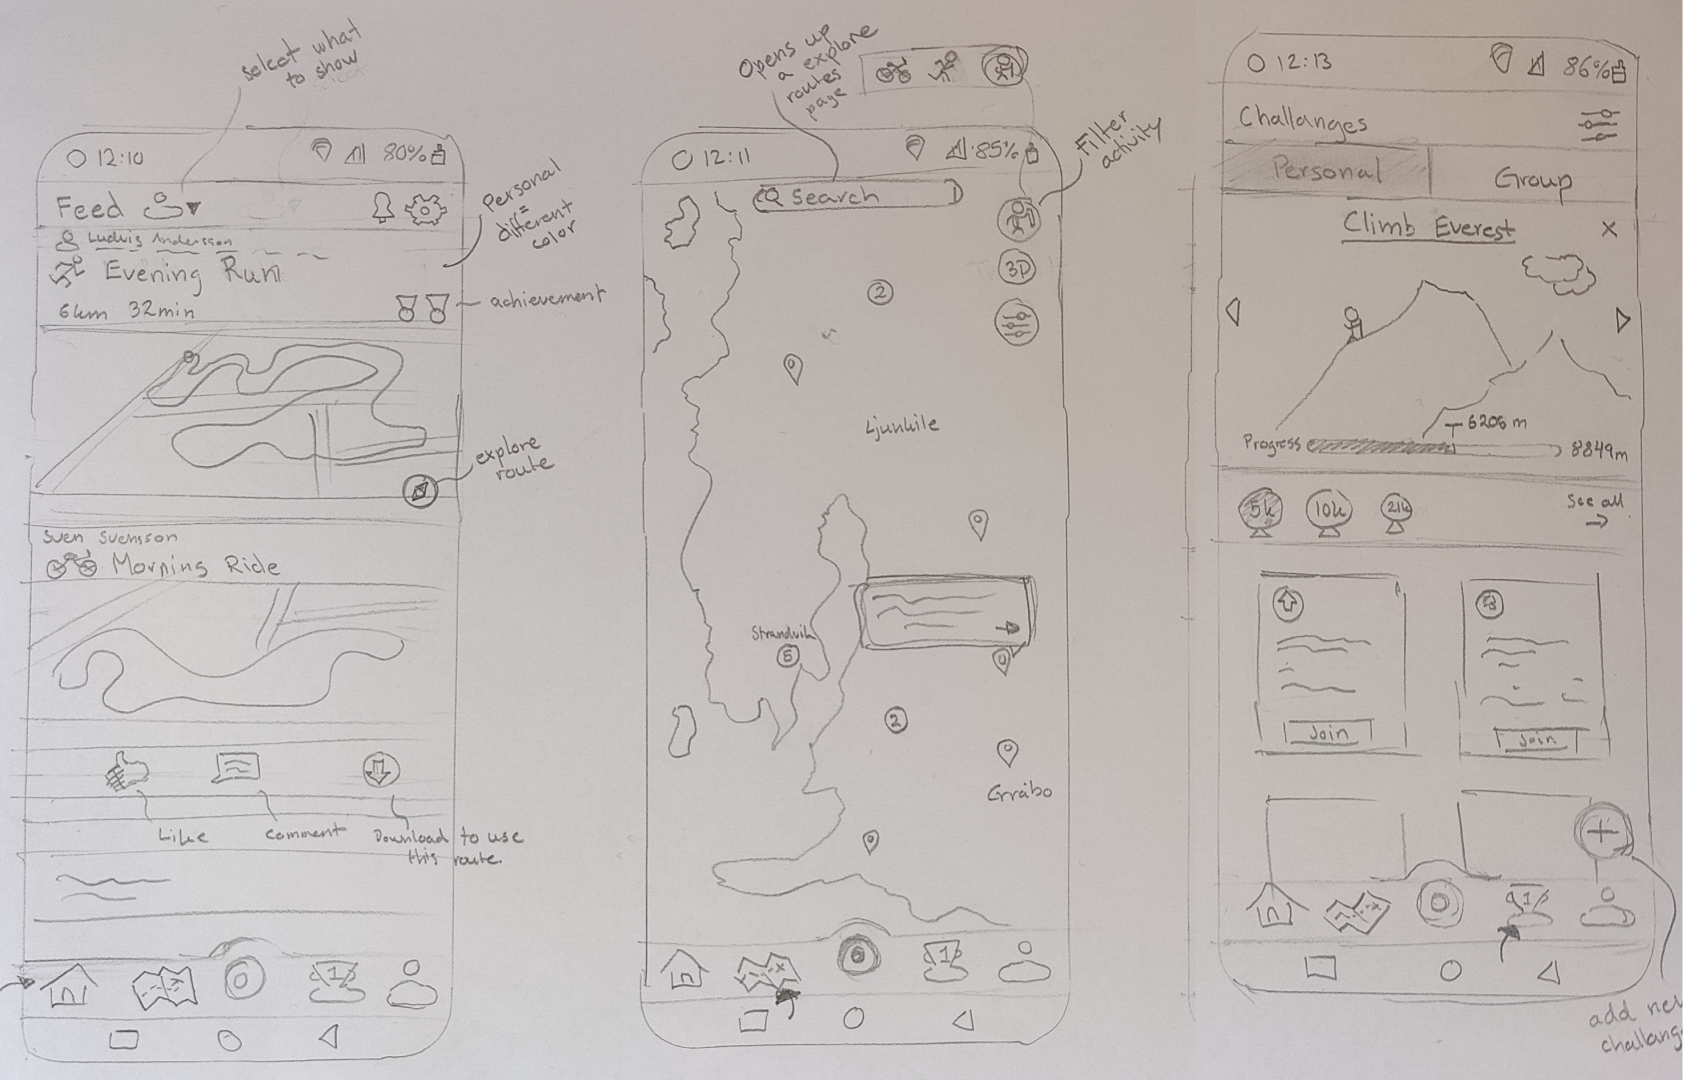 select what
to show
12:10
80%
Feed
Ludvig Andersson
Evening Run
6km 32min
Personal
=
different
color
achievement
explore
route
Sven Svensson
Morning Ride
Like
comment
Download to use
this route.
1
Opens up
a explore
routes
page
12:11
85%
Search
Filter
activity
3D
2
Ljunhile
Strandvik
5
2
Grräbo
1
12:13
86%
Challanges
Personal
Group
Climb Everest
x
6206 m
Progress
8849m
5k
10k
21k
See all
Join
Join
+
1
add new
challang